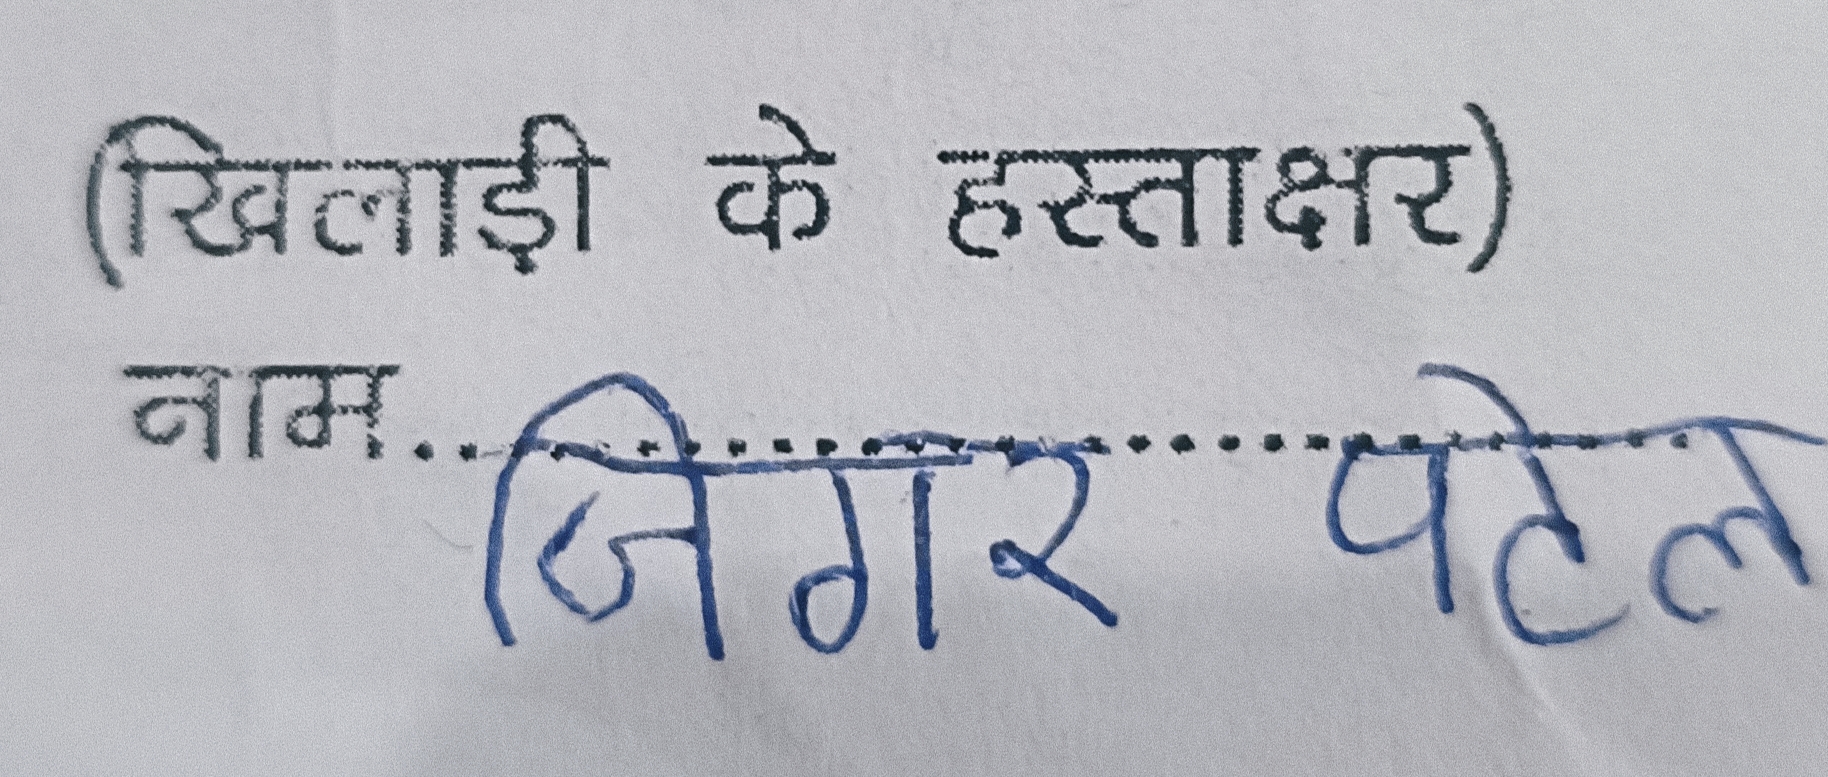 (खिलाड़ी के हस्ताक्षर)
नाम.. जिगर पटेल